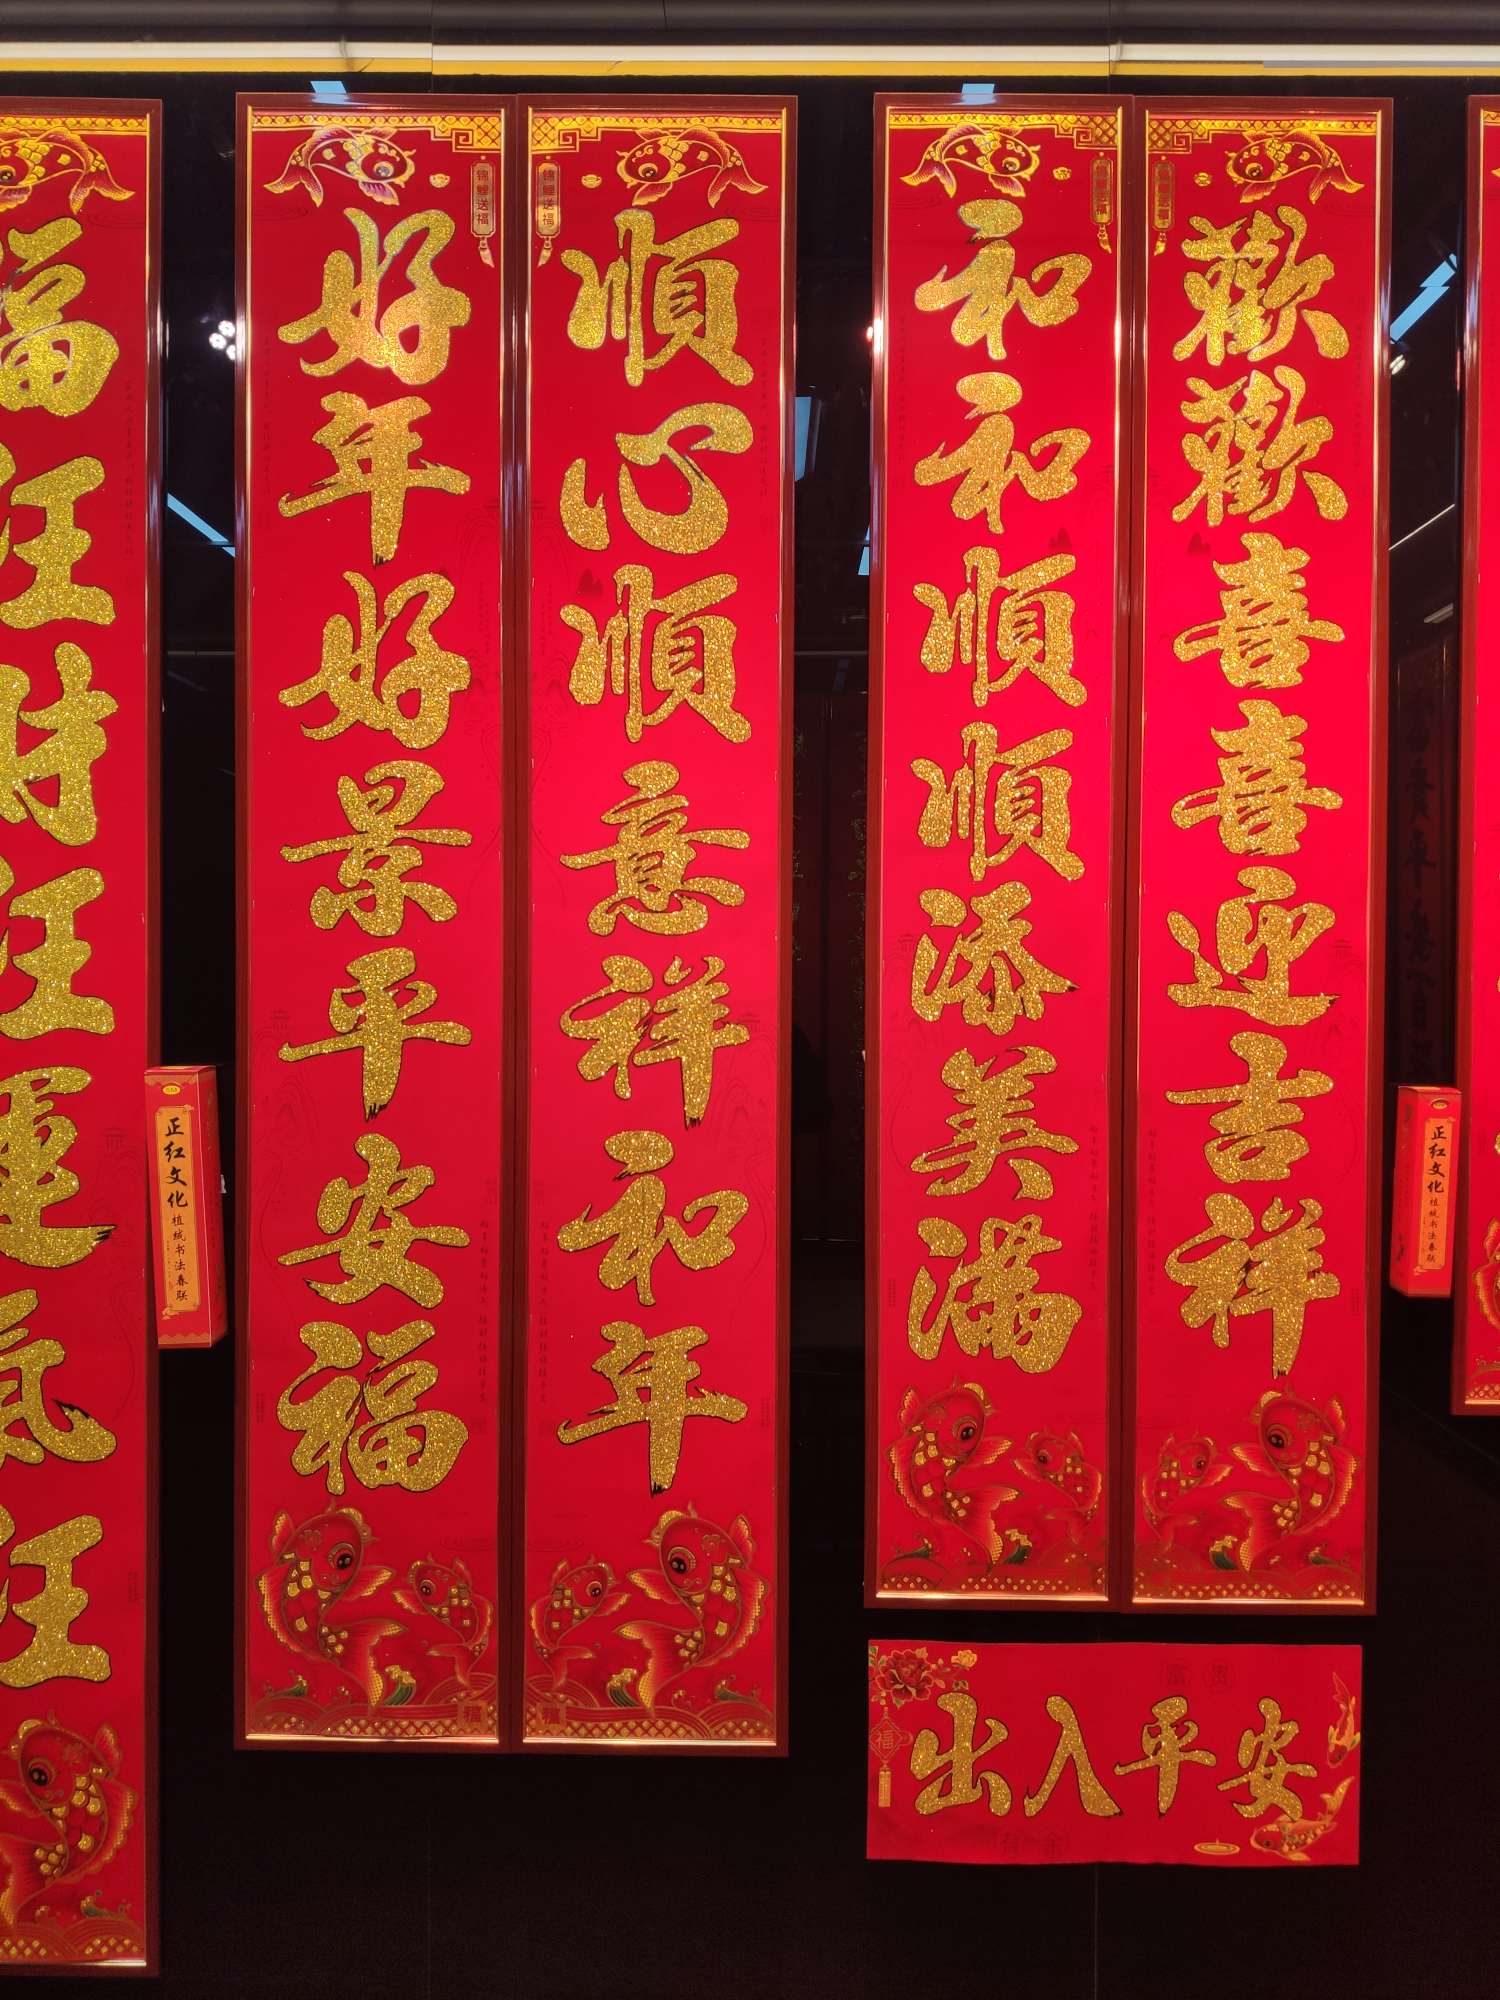 福旺財旺運氣旺
好年好景平安福
順心順意祥和年
和和順順添美满
歡歡喜喜迎吉祥
出入平安
锦鲤送福
锦鲤送福
锦鲤送福
锦鲤送福
正红文化
植绒书法春联
正红文化
植绒书法春联
福
福
福